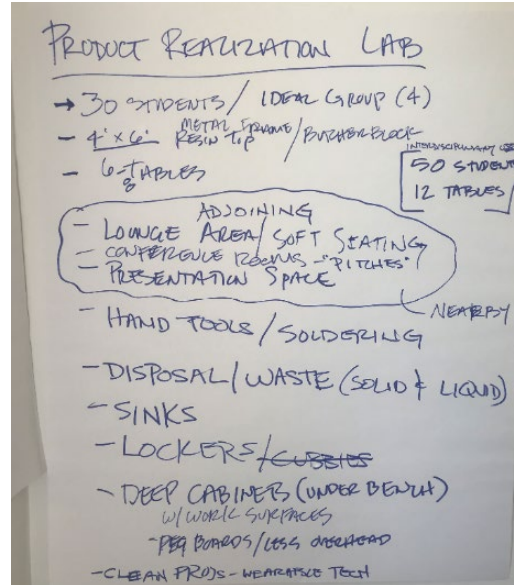 PRODUCT REALIZATION LAB
→ 30 STUDENTS / IDEAL GROUP (4)
- 4' x 6' METAL FRAME / BUTCHER BLOCK
RESIN TOP
- 6-8 TABLES
INTERDISCIPLINARY
50 STUDENT
12 TABLES
ADJOINING
- LOUNGE AREA / SOFT SEATING
- CONFERENCE ROOMS - "PITCHES"
- PRESENTATION SPACE
NEARBY
- HAND TOOLS / SOLDERING
- DISPOSAL / WASTE (SOLID & LIQUID)
- SINKS
- LOCKERS / CUBBIES
- DEEP CABINETS (UNDER BENCH)
W/ WORK SURFACES
- PEG BOARDS / LESS OVERHEAD
- CLEAN PROJS - WEARABLE TECH